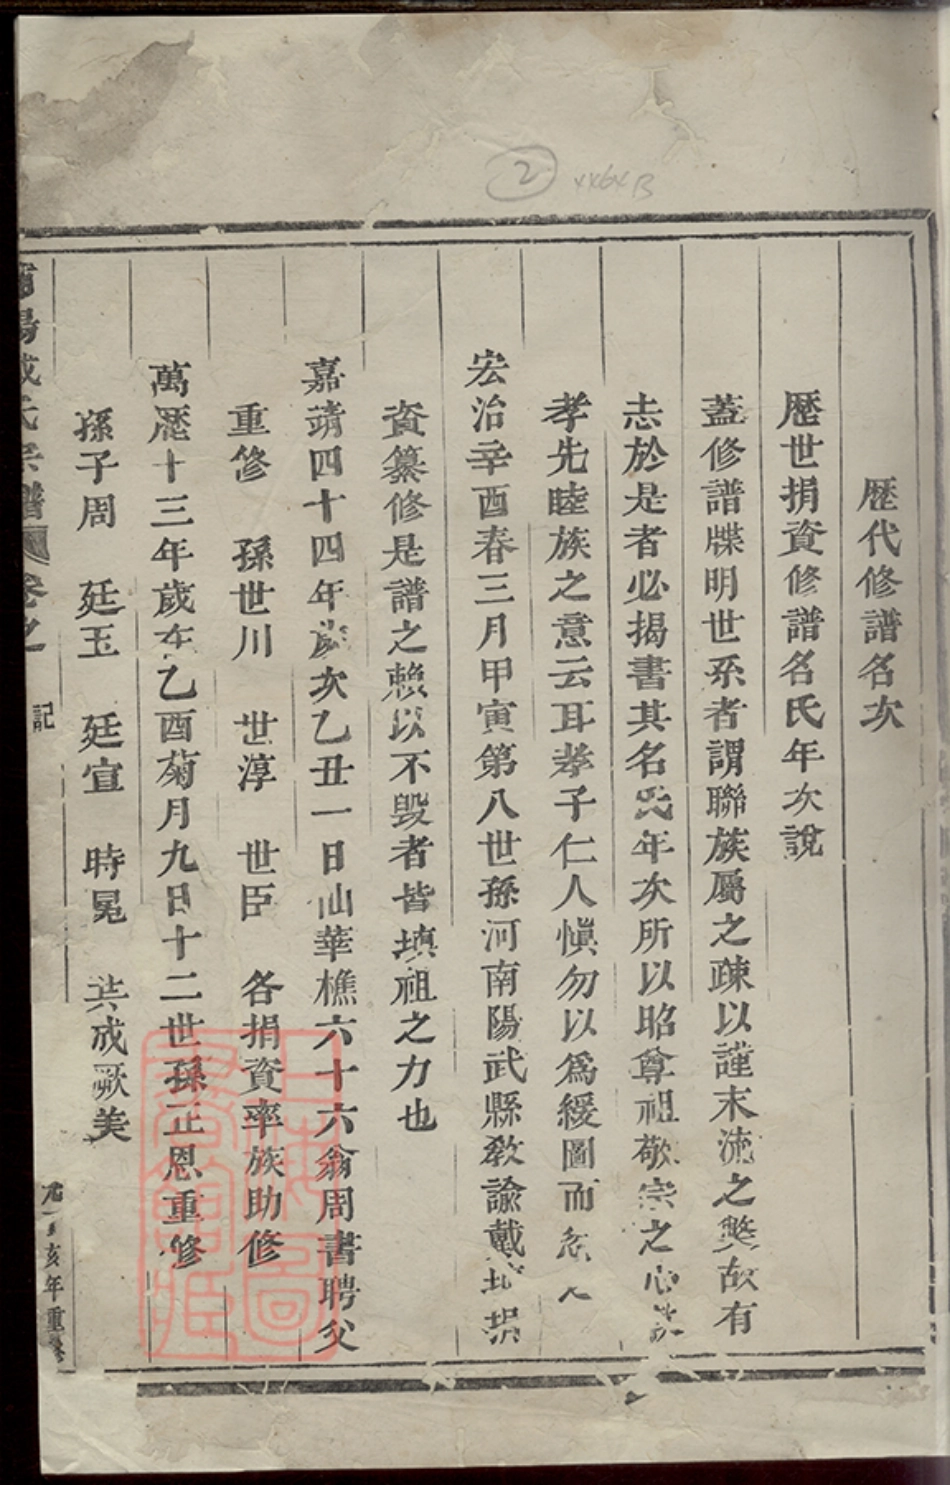 ② xx6xB
歷代修譜名次
歷世捐資修譜名氏年次說
蓋修譜牒明世系者謂聯族屬之疎以謹末流之獘故有
志於是者必揭書其名氏年次所以昭尊祖敬宗之心
孝先睦族之意云耳孝子仁人愼勿以爲緩圖而忽
宏治辛酉春三月甲寅第八世孫河南陽武縣敎諭戴 捐
資纂修是譜之賴以不毁者皆塡祖之力也
嘉靖四十四年歲次乙丑一日仙華樵六十六翁周書聘父
重修 孫世川 世淳 世臣 各捐資率族助修
萬歷十三年歲在乙酉菊月九日十二世孫正恩重修
孫子周 廷玉 廷宣 時冕 共成厥美
陽 氏宗譜 卷之 記
亥年重
上海圖書館藏